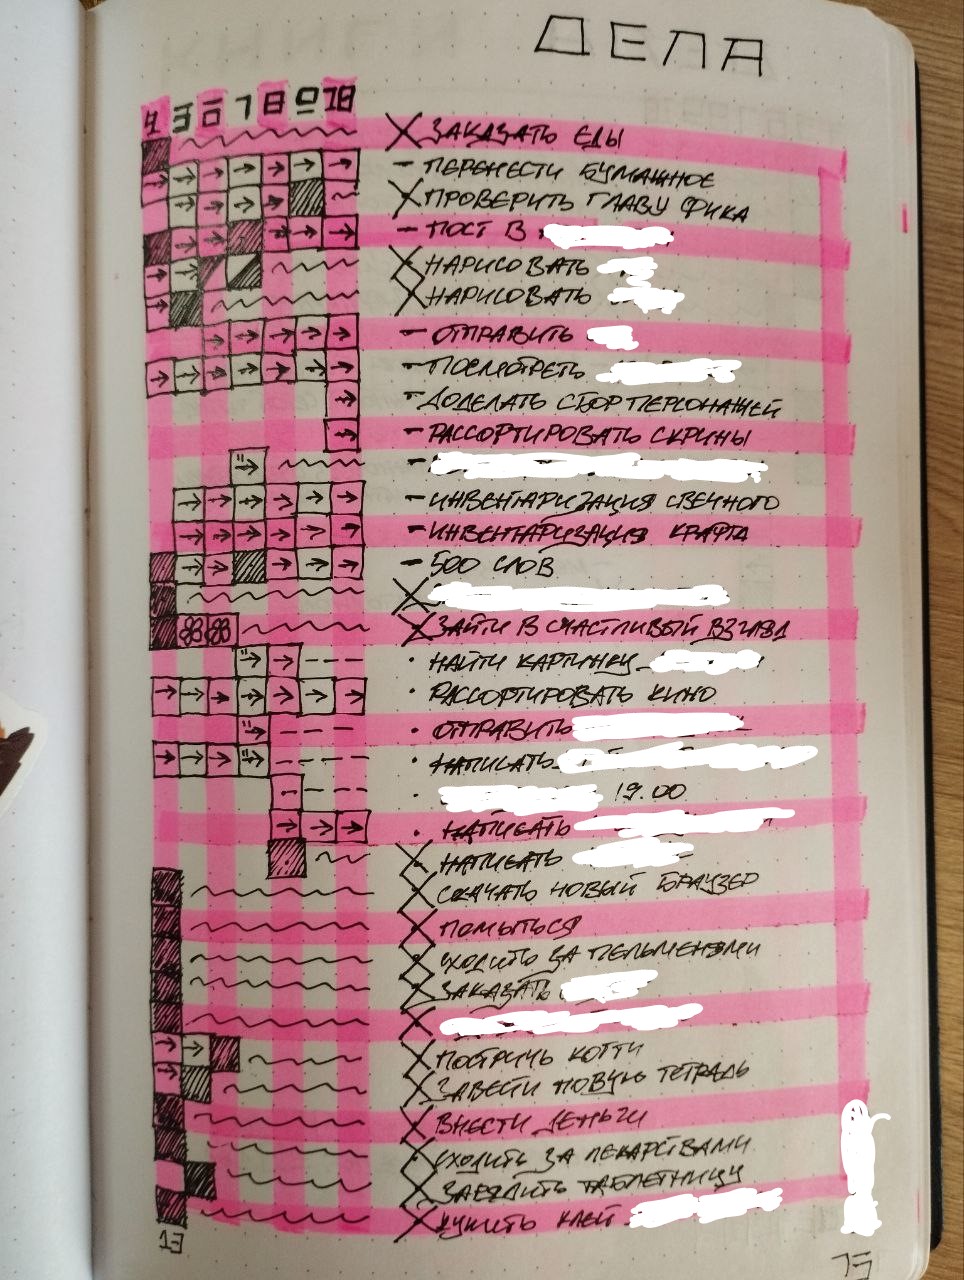 ДЕЛА
ЗАКАЗАТЬ ЕДЫ
- ПЕРЕНЕСТИ БУМАЖНОЕ
ПРОВЕРИТЬ ГЛАВУ ФИКА
- ПОСТ В
НАРИСОВАТЬ
НАРИСОВАТЬ
- ОТПРАВИТЬ
- ПОСМОТРЕТЬ
- ДОДЕЛАТЬ СБОР ПЕРСОНАЖЕЙ
- РАССОРТИРОВАТЬ СКРИНЫ
-
- ИНВЕНТАРИЗАЦИЯ СВЕЧНОГО
- ИНВЕНТАРИЗАЦИЯ КРАФТА
- 500 СЛОВ
ЗАЙТИ В СЧАСТЛИВЫЙ ВЗГЛЯД
· НАЙТИ КАРТИНКУ
· РАССОРТИРОВАТЬ КИНО
· ОТПРАВИТЬ
· НАПИСАТЬ
· 19.00
· НАПИСАТЬ
НАПИСАТЬ
СКАЧАТЬ НОВЫЙ БРАУЗЕР
ПОМЫТЬСЯ
СХОДИТЬ ЗА ПЕЛЬМЕНЯМИ
ЗАКАЗАТЬ
ПОСТРИЧЬ КОГТИ
ЗАВЕСТИ НОВУЮ ТЕТРАДЬ
ВНЕСТИ ДЕНЬГИ
СХОДИТЬ ЗА ЛЕКАРСТВАМИ
ТАБЛЕТНИЦУ
КУПИТЬ КЛЕЙ
13